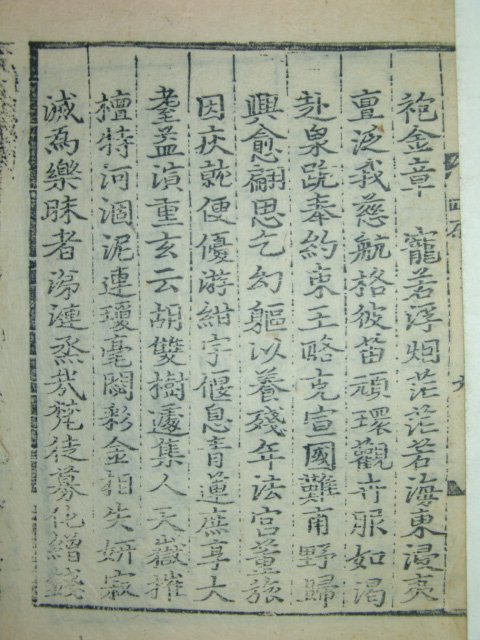 袍金章 寵若浮烟茫茫若海東浸夷
亶泛我慈航格彼苗頑環觀卉服如渴
赴泉跣奉約束王略克宣國難甭野歸
興愈翩思乞幻軀以養殘年法宮董旅
因疾就便優游紺宇偃息靑蓮庶享大
耋益演重玄云胡雙樹遽集人天嶽摧
檀特河涸泥連瓊毫閟彩金相失姸寂
滅爲樂昧者涕漣烝哉髡徒募化繒錢